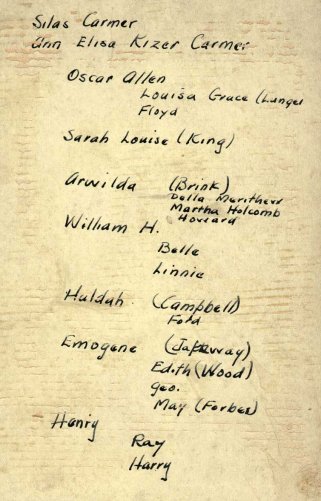 Silas Carmer
Ann Elisa Kizer Carmer
Oscar Allen
Louisa Grace (Lunger
Floyd
Sarah Louise (King)
Arwilda (Brink)
Della Merithew
Martha Holcomb
Howard
William H.
Belle
Linnie
Huldah (Campbell)
Ford
Emogene
Edith (Wood)
Geo.
May (Forbes)
Henry
Ray
Harry